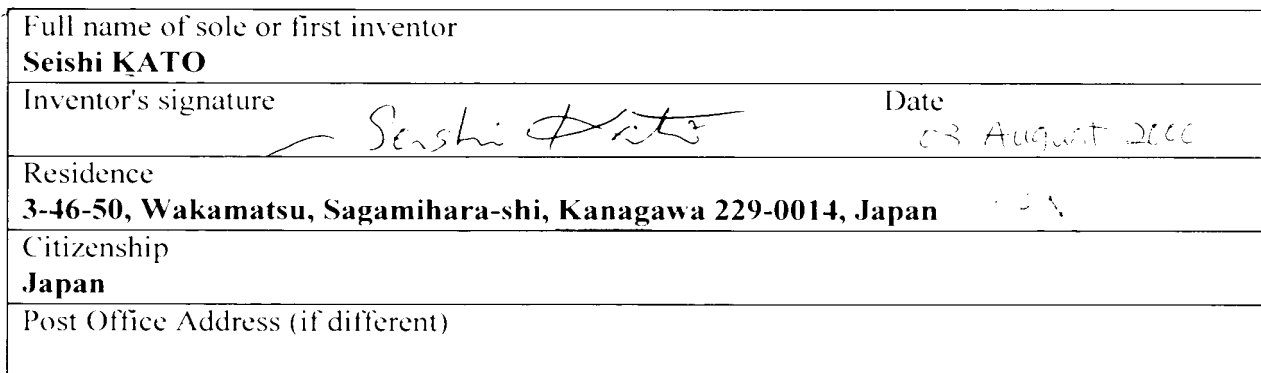 Full name of sole or first inventor
Seishi KATO
Inventor's signature Date
Seishi Kato 03 August 2000
Residence
3-46-50, Wakamatsu, Sagamihara-shi, Kanagawa 229-0014, Japan
Citizenship
Japan
Post Office Address (if different)